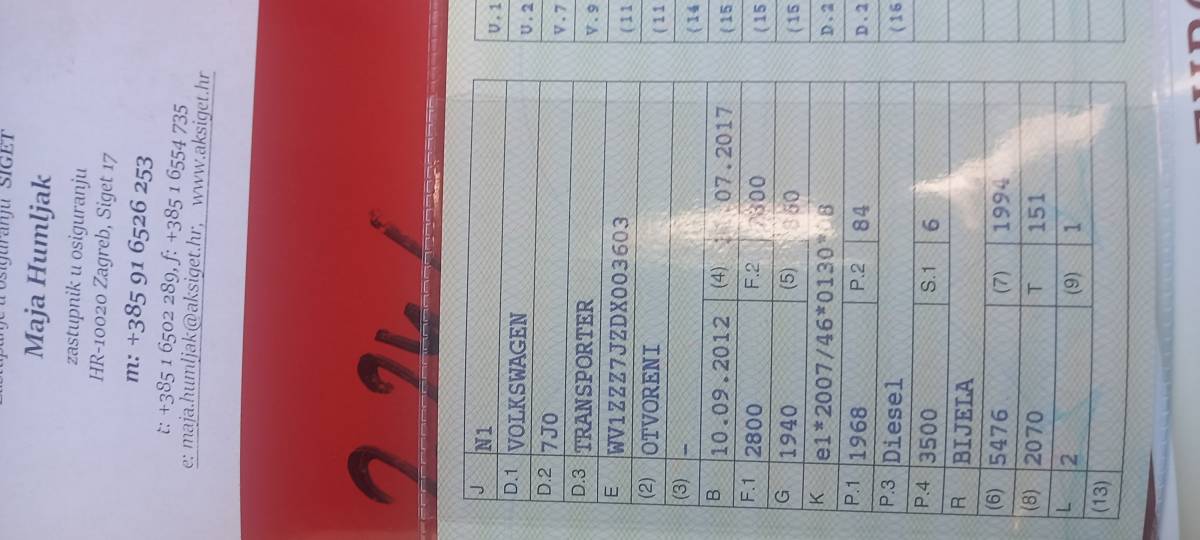 SIGET
Maja Humljak
zastupnik u osiguranju
HR-10020 Zagreb, Siget 17
m: +385 91 6526 253
t: +385 1 6502 289, f: +385 1 6554 735
e: maja.humljak@aksiget.hr, www.aksiget.hr
J N1
D.1 VOLKSWAGEN
D.2 7J0
D.3 TRANSPORTER
E WV1ZZZ7JZDX003603
(2) OTVORENI
(3) -
B 10.09.2012 (4) 07.2017
F.1 2800 F.2
G 1940 (5)
K
P.1 1968 P.2 84
P.3 Diesel
P.4 3500 S.1 6
R BIJELA
(6) 5476 (7) 1994
(8) 2070 T 151
L 2 (9) 1
(13)
U.1
U.2
V.7
V.9
(11
(11
(14
(15
(15
(15
D.2
D.2
(16